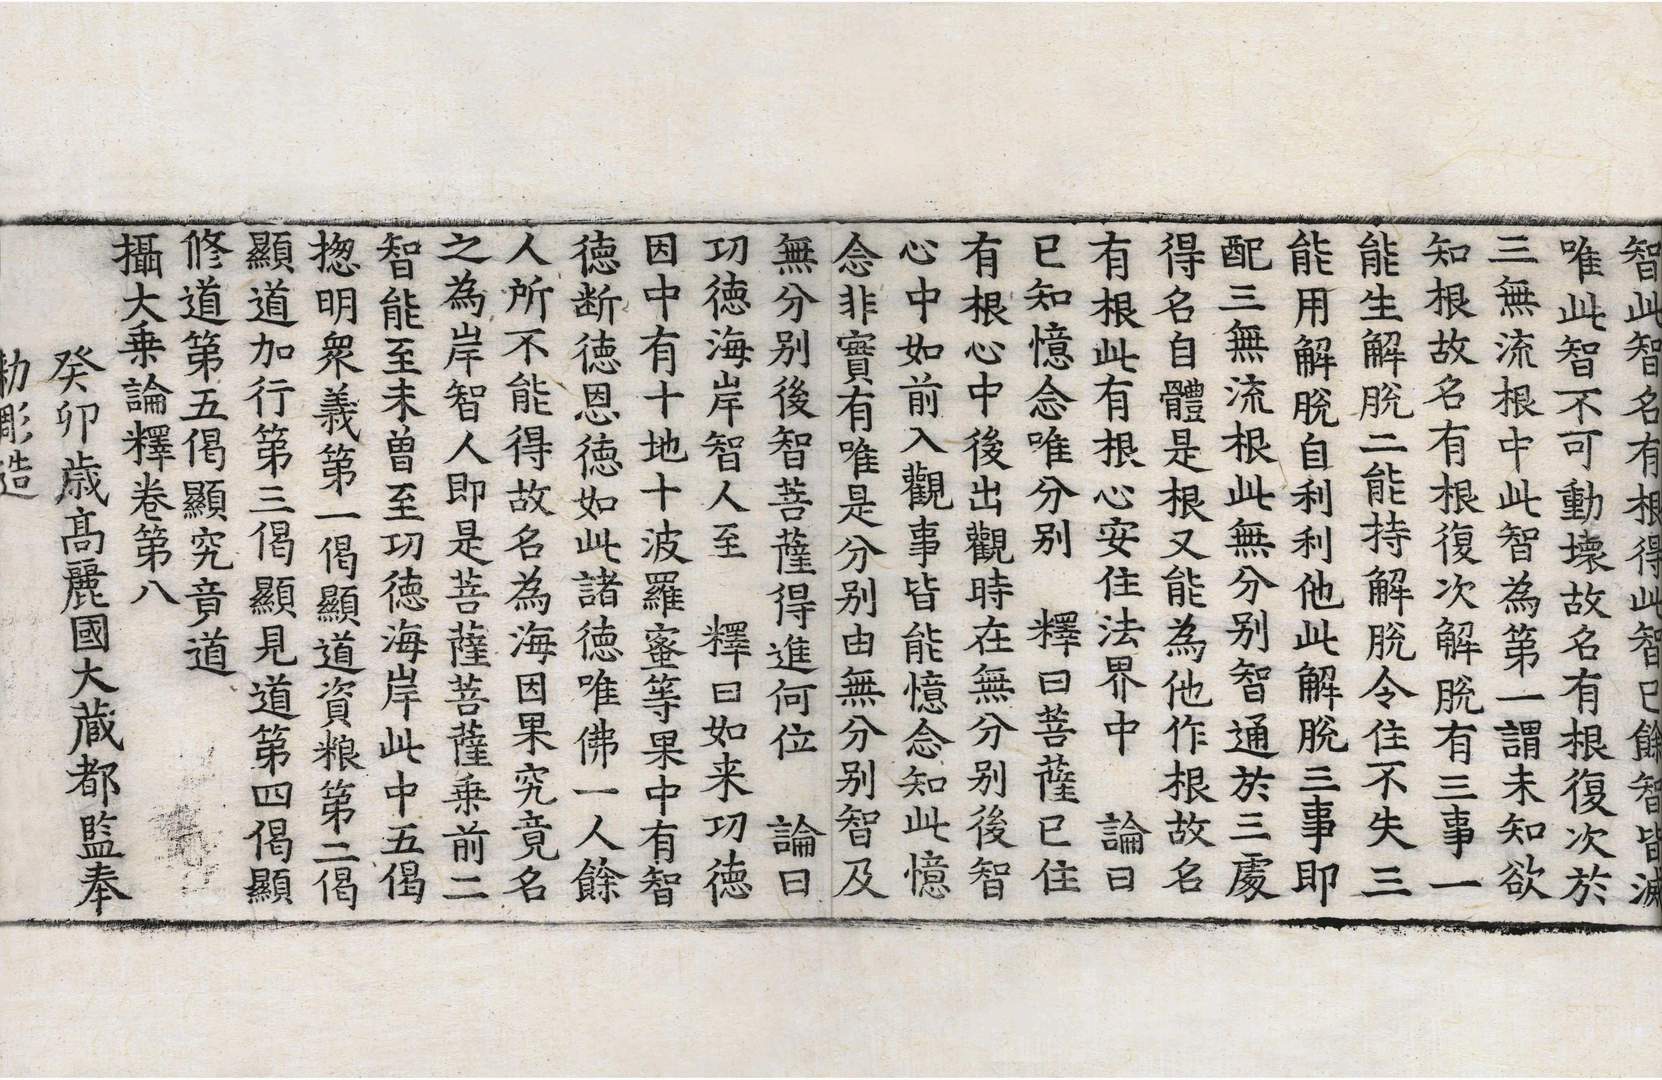 智此智名有根得此智已餘智皆滅
唯此智不可動壞故名有根復次於
三無流根中此智為第一謂未知欲
知根故名有根復次解脫有三事一
能生解脫二能持解脫令住不失三
能用解脫自利利他此解脫三事即
配三無流根此無分別智通於三處
得名自體是根又能為他作根故名
有根此有根心安住法界中　論曰
已知憶念唯分別　釋曰菩薩已住
有根心中後出觀時在無分別後智
心中如前入觀事皆能憶念知此憶
念非實有唯是分別由無分別智及
無分別後智菩薩得進何位　論曰
功德海岸智人至　釋曰如来功德
因中有十地十波羅蜜等果中有智
德断德恩德如此諸德唯佛一人餘
人所不能得故名為海因果究竟名
之為岸智人即是菩薩菩薩乗前二
智能至未曾至功德海岸此中五偈
揔明衆義第一偈顯道資粮第二偈
顯道加行第三偈顯見道第四偈顯
修道第五偈顯究竟道
攝大乗論釋卷第八
癸卯歲髙麗國大藏都監奉
勑彫造